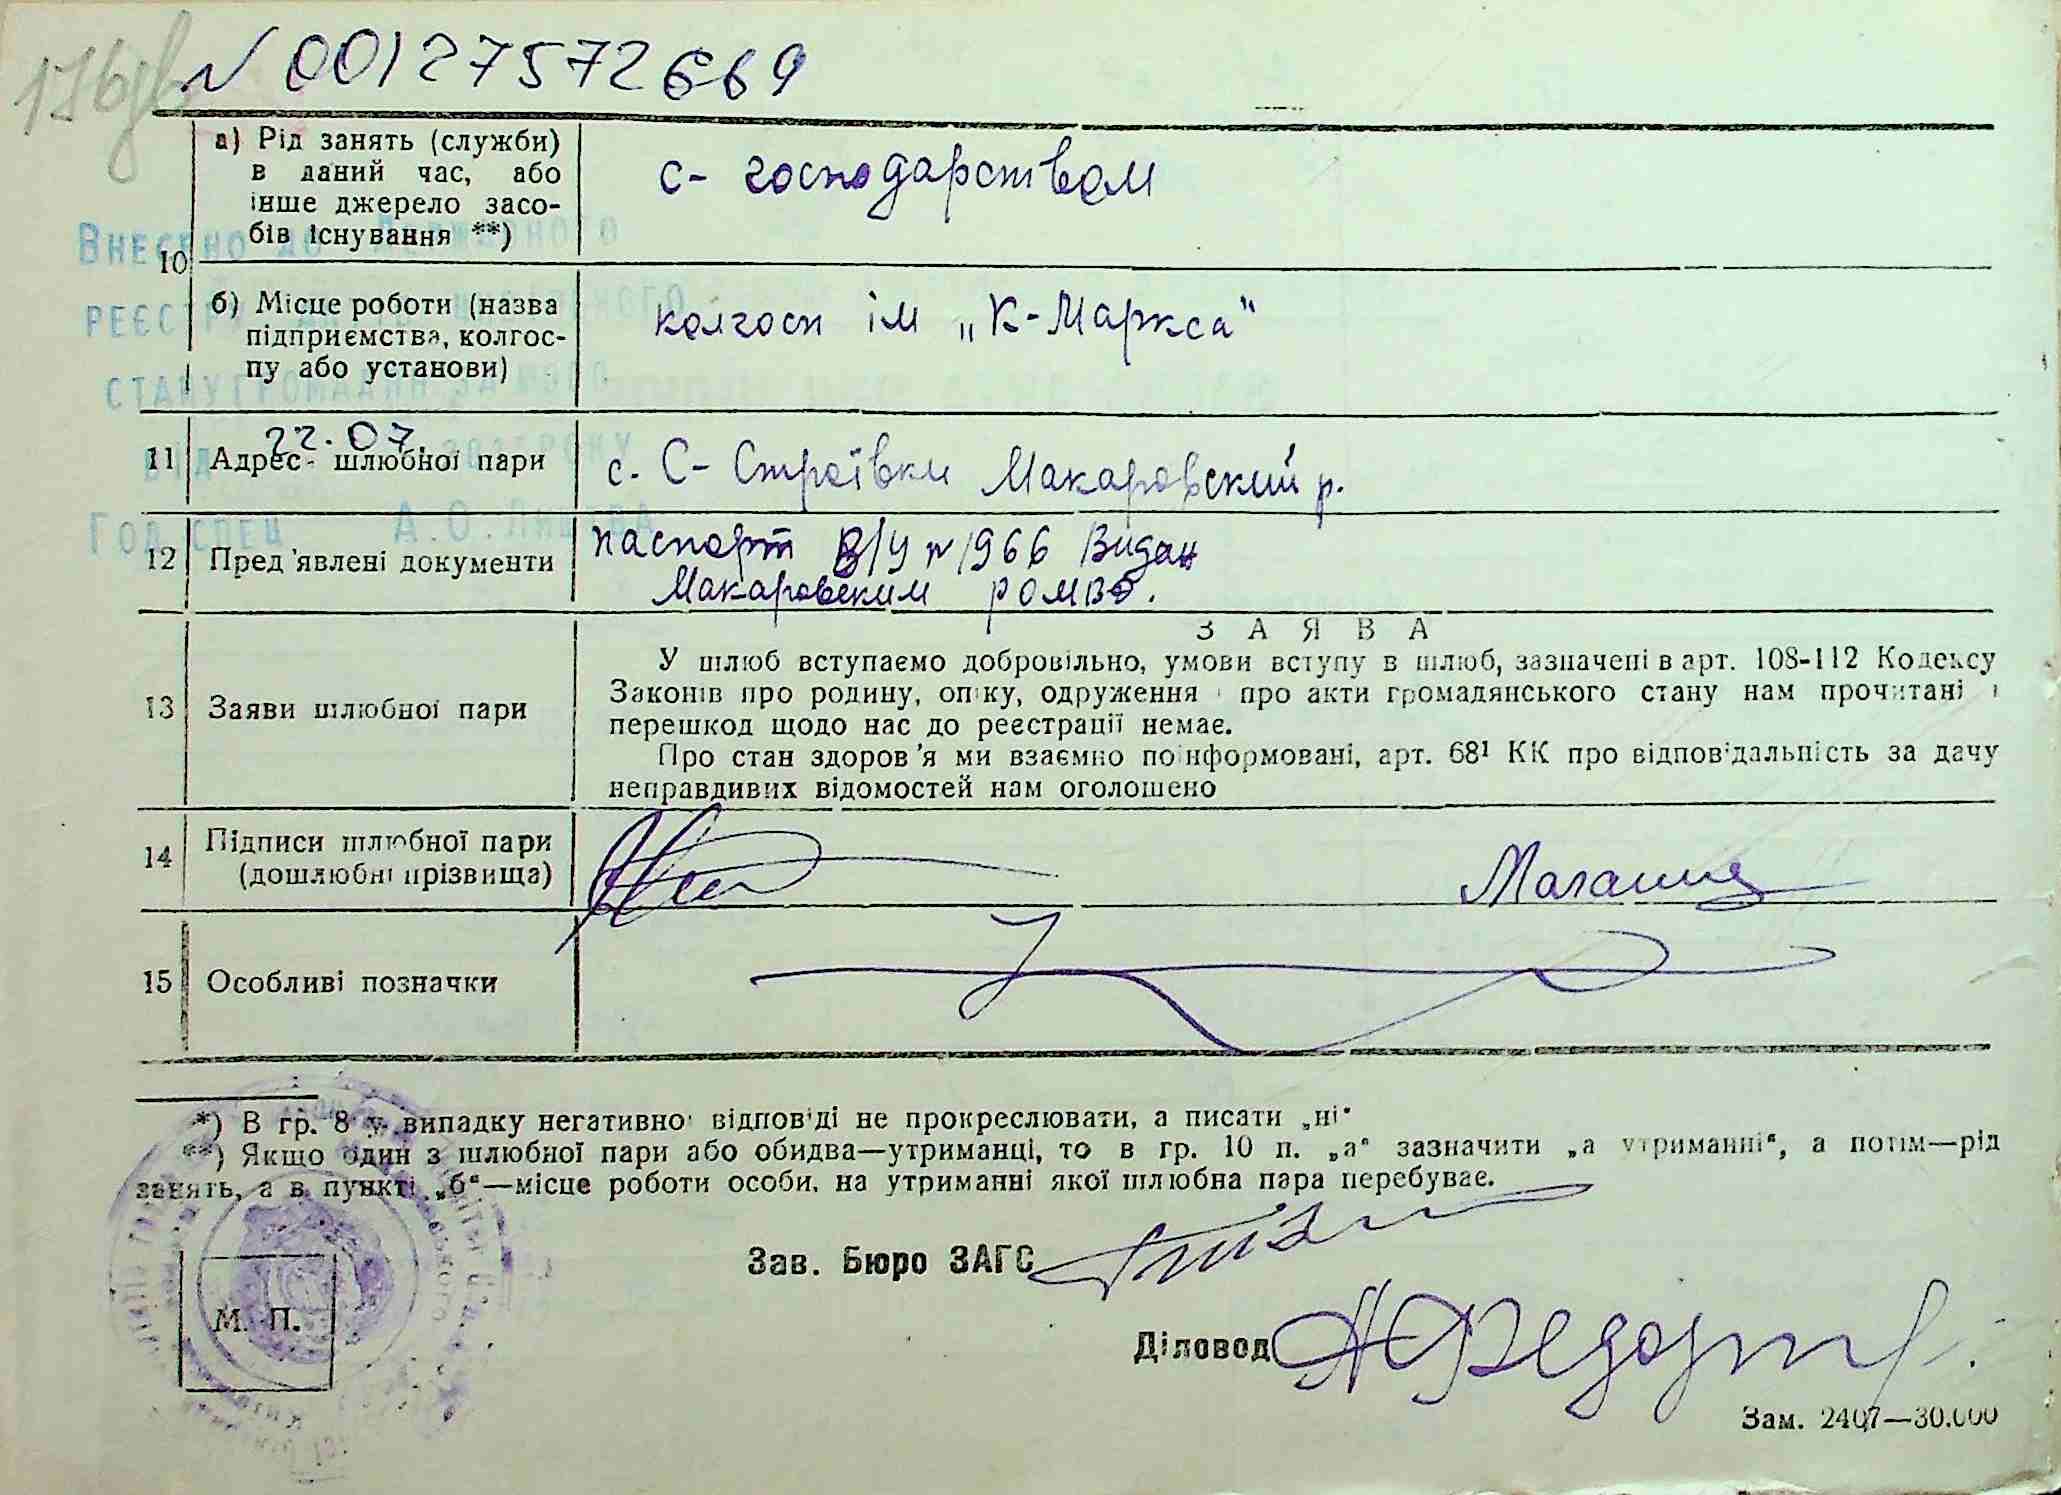 N 00127572669
а) Рід занять (служби)
в даний час, або
інше джерело засо-
бів існування **)
с- господарством
10
б) Місце роботи (назва
підприємства, колгос-
пу або установи)
колгосп ім „К-Маркса"
Внесено до Державного
реєстру
стану громадян за мого
22.07.
11 Адрес шлюбної пари
с. С- Строївки Макаровский р.
А.О.
12 Пред'явлені документи
паспорт В/У № 1966 Видан
Макаровским РОМВД.
ЗАЯВА
13 Заяви шлюбної пари
У шлюб вступаємо добровільно, умови вступу в шлюб, зазначені в арт. 108-112 Кодексу
Законів про родину, опіку, одруження і про акти громадянського стану нам прочитані і
перешкод щодо нас до реєстрації немає.
Про стан здоров'я ми взаємно поінформовані, арт. 68¹ КК про відповідальність за дачу
неправдивих відомостей нам оголошено
14 Підписи шлюбної пари
(дошлюбні прізвища)
15 Особливі позначки
*) В гр. 8 у випадку негативної відповіді не прокреслювати, а писати „ні"
**) Якщо один з шлюбної пари або обидва—утриманці, то в гр. 10 п. „а" зазначити „а утриманні", а потім—рід
занять, а в пункті „б"—місце роботи особи, на утриманні якої шлюбна пара перебуває.
Зав. Бюро ЗАГС
М. П.
Діловод
Зам. 2407—30.000